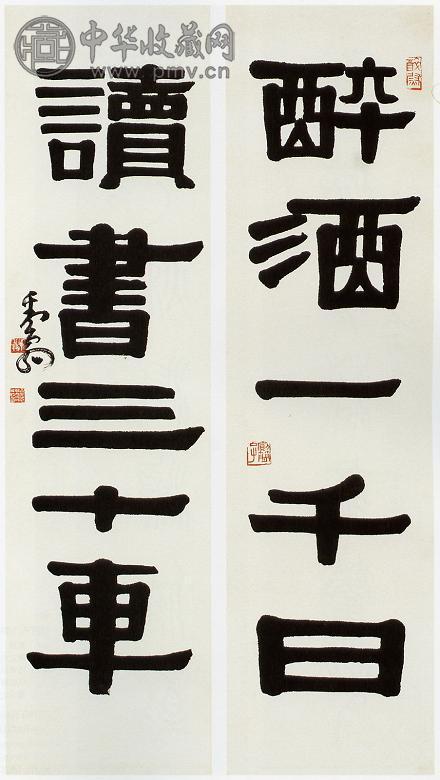 中华收藏网
www.pmv.cn
醉酒一千日
讀書三十車